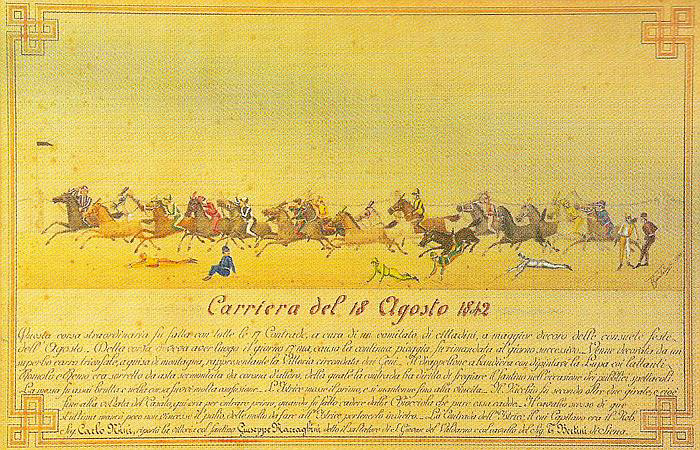 Carriera del 18 Agosto 1842
Questa corsa straordinaria fu fatta con tutte le 17 Contrade, a cura di un comitato di cittadini, a maggior decoro delle consuete feste
dell' Agosto. Della corsa, si dovea aver luogo il giorno 17 ma, causa la continua pioggia, fu rimandata al giorno successivo. Venne decorata da un
superbo carro trionfale, a guisa di montagna, rappresentante la Vittoria circondata dai Geni. Nel drappellone a bandiera con dipintavi la Lupa coi lattanti
Romolo e Remo era sorretto da asta sormontata da corona d'alloro, della quale la contrada, ha diritto di fregiare il fantino nell'occasione dei pubblici spettacoli.
La mossa fu assai brutta e nella corsa furono molta confusione. L'Istrice mosse il primo, e si mantenne fino alla
Il Nicchio, fu secondo altre due girate, e cioè
fino alla voltata del Casato, qui era per entrare primo, quando fu fatto cadere dalla Chiocciola che pure essa cadde. Il fantino scosso di
mancò poco non vincesse il palio, dette molto da fare all'Istrice per tenerlo indietro. La Contrada dell'Istrice, il cui Capitano era il Nob.
Sig. Carlo Nini, riportò la vittoria col fantino Giuseppe Razzaghini, detto il saltatore di S. Giovan del Valdarno e col cavallo del Sig. T. Bettini di Siena.